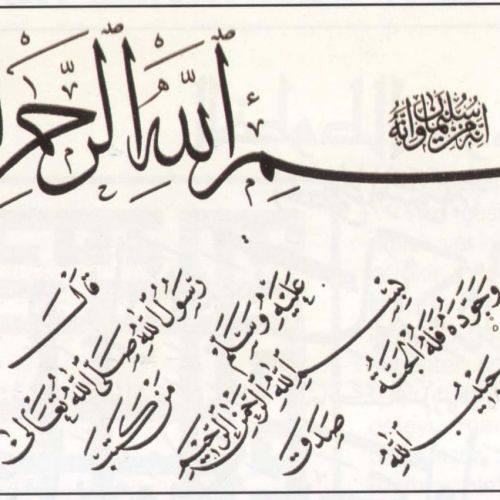 إنه من سليمان وإنه
بسم الله الرحمن
قال
رسول الله صلى الله تعالى
عليه وسلم
من كتب
بسم الله الرحمن الرحيم
وجوده فله الجنة
صدق
حبيب الله